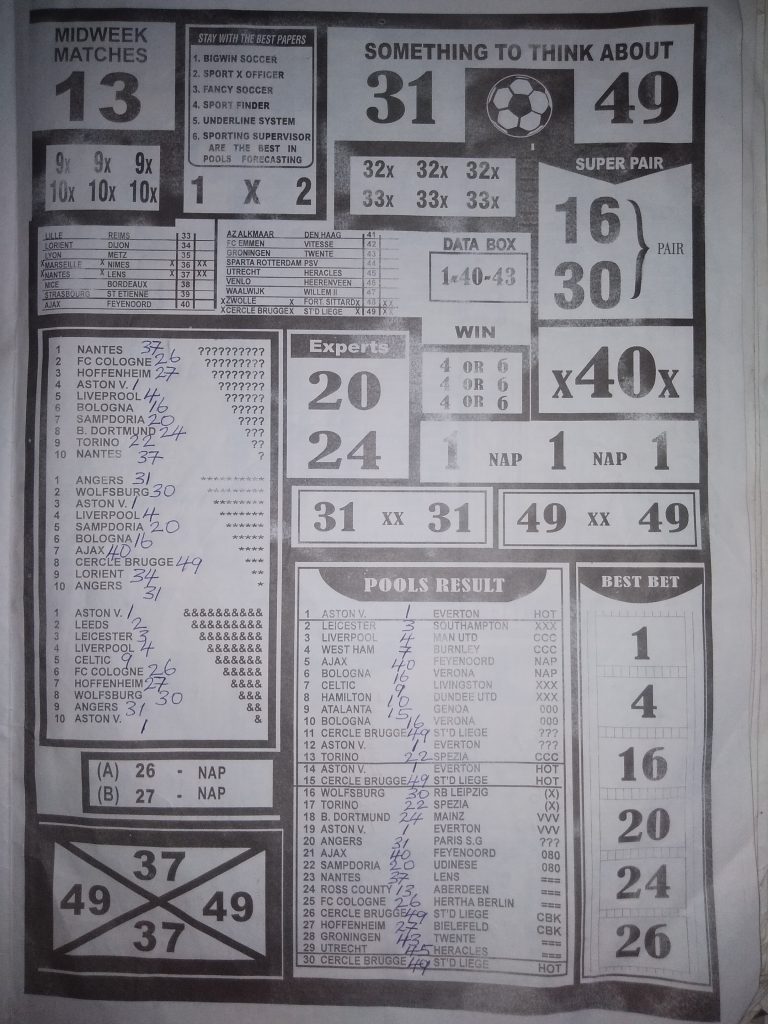 MIDWEEK
MATCHES
13
STAY WITH THE BEST PAPERS
1. BIGWIN SOCCER
2. SPORT X OFFICER
3. FANCY SOCCER
4. SPORT FINDER
5. UNDERLINE SYSTEM
6. SPORTING SUPERVISOR
ARE THE BEST IN
POOLS FORECASTING
1 X 2
SOMETHING TO THINK ABOUT
31 49
9x 9x 9x
10x 10x 10x
32x 32x 32x
33x 33x 33x
SUPER PAIR
16
30
PAIR
LILLE REIMS 33
LORIENT DIJON 34
LYON METZ 35
X MARSEILLE X NIMES X 36 XX
X NANTES X LENS X 37 XX
NICE BORDEAUX 38
STRASBOURG ST ETIENNE 39
AJAX FEYENOORD 40
AZ ALKMAAR DEN HAAG 41
FC EMMEN VITESSE 42
GRONINGEN TWENTE 43
SPARTA ROTTERDAM PSV 44
UTRECHT HERACLES 45
VENLO HEERENVEEN 46
WAALWIJK WILLEM II 47
X ZWOLLE X FORT. SITTARD X 48 XX
X CERCLE BRUGGE X ST'D LIEGE X 49 XX
DATA BOX
1-40-43
WIN
4 OR 6
4 OR 6
4 OR 6
X40X
1 NAP 1 NAP 1
Experts
20
24
31 XX 31
49 XX 49
1 NANTES 37 ??????????
2 FC COLOGNE 26 ?????????
3 HOFFENHEIM 27 ????????
4 ASTON V. 1 ???????
5 LIVEPROOL 4 ??????
6 BOLOGNA 16 ?????
7 SAMPDORIA 20 ????
8 B. DORTMUND 24 ???
9 TORINO 22 ??
10 NANTES 37 ?
1 ANGERS 31 **********
2 WOLFSBURG 30 *********
3 ASTON V. 1 ********
4 LIVERPOOL 4 *******
5 SAMPDORIA 20 ******
6 BOLOGNA 16 *****
7 AJAX 40 ****
8 CERCLE BRUGGE 49 ***
9 LORIENT 34 **
10 ANGERS 31 *
1 ASTON V. 1 &&&&&&&&&&
2 LEEDS 2 &&&&&&&&&
3 LEICESTER 3 &&&&&&&&
4 LIVERPOOL 4 &&&&&&&
5 CELTIC 9 &&&&&&
6 FC COLOGNE 26 &&&&&
7 HOFFENHEIM 27 &&&&
8 WOLFSBURG 30 &&&
9 ANGERS 31 &&
10 ASTON V. 1 &
(A) 26 - NAP
(B) 27 - NAP
37
49 49
37
POOLS RESULT
1 ASTON V. 1 EVERTON HOT
2 LEICESTER 3 SOUTHAMPTON XXX
3 LIVERPOOL 4 MAN UTD CCC
4 WEST HAM 7 BURNLEY CCC
5 AJAX 40 FEYENOORD NAP
6 BOLOGNA 16 VERONA NAP
7 CELTIC 9 LIVINGSTON XXX
8 HAMILTON 10 DUNDEE UTD XXX
9 ATALANTA 15 GENOA 000
10 BOLOGNA 16 VERONA 000
11 CERCLE BRUGGE 49 ST'D LIEGE ???
12 ASTON V. 1 EVERTON ???
13 TORINO 22 SPEZIA CCC
14 ASTON V. 1 EVERTON HOT
15 CERCLE BRUGGE 49 ST'D LIEGE HOT
16 WOLFSBURG 30 RB LEIPZIG (X)
17 TORINO 22 SPEZIA (X)
18 B. DORTMUND 24 MAINZ VVV
19 ASTON V. 1 EVERTON VVV
20 ANGERS 31 PARIS S.G ???
21 AJAX 40 FEYENOORD 080
22 SAMPDORIA 20 UDINESE 080
23 NANTES 37 LENS ===
24 ROSS COUNTY 13 ABERDEEN ===
25 FC COLOGNE 26 HERTHA BERLIN ===
26 CERCLE BRUGGE 49 ST'D LIEGE CBK
27 HOFFENHEIM 27 BIELEFELD CBK
28 GRONINGEN 43 TWENTE ===
29 UTRECHT HERACLES ===
30 CERCLE BRUGGE 49 ST'D LIEGE HOT
BEST BET
1
4
16
20
24
26